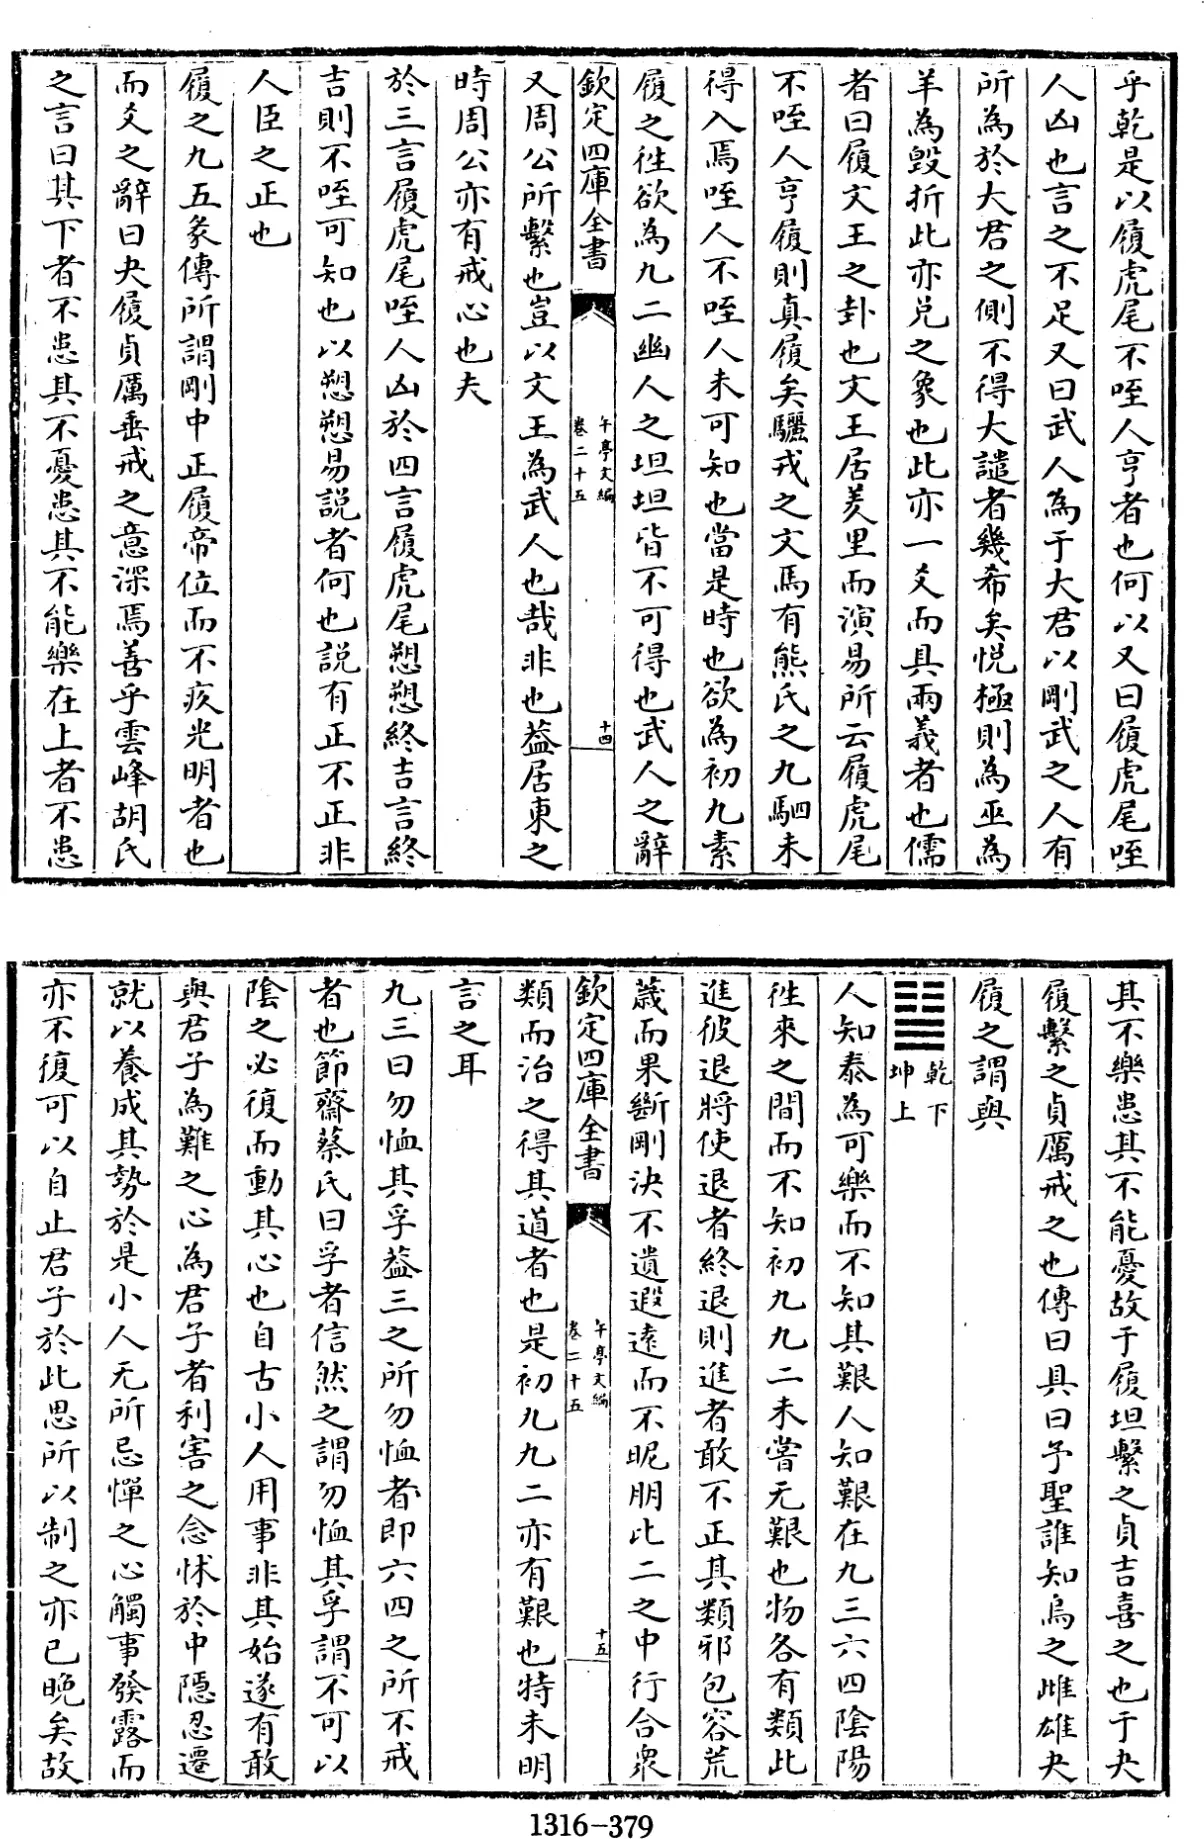 乎乾是以履虎尾不咥人亨者也何以又曰履虎尾咥
人凶也言之不足又曰武人為于大君以剛武之人有
所為於大君之側不得大譴者幾希矣悦極則為巫為
羊為毁折此亦兑之象也此亦一爻而具兩義者也儒
者曰履文王之卦也文王居羑里而演易所云履虎尾
不咥人亨履則真履矣驪戎之文馬有熊氏之九駟未
得入焉咥人不咥人未可知也當是時也欲為初九素
履之徃欲為九二幽人之坦坦皆不可得也武人之辭
欽定四庫全書
午亭文編
卷二十五
十四
又周公所繫也豈以文王為武人也哉非也葢居東之
時周公亦有戒心也夫
於三言履虎尾咥人凶於四言履虎尾愬愬終吉言終
吉則不咥可知也以愬愬易説者何也説有正不正非
人臣之正也
履之九五彖傳所謂剛中正履帝位而不疚光明者也
而爻之辭曰夬履貞厲垂戒之意深焉善乎雲峰胡氏
之言曰其下者不患其不憂患其不能樂在上者不患
其不樂患其不能憂故于履坦繫之貞吉喜之也于夬
履繫之貞厲戒之也傳曰具曰予聖誰知烏之雌雄夬
履之謂與
䷊
乾下
坤上
人知泰為可樂而不知其艱人知艱在九三六四陰陽
徃來之間而不知初九九二未嘗无艱也物各有類此
進彼退將使退者終退則進者敢不正其類邪包容荒
薉而果斷剛決不遺遐逺而不昵朋比二之中行合衆
欽定四庫全書
午亭文編
卷二十五
十五
類而治之得其道者也是初九九二亦有艱也特未明
言之耳
九三曰勿恤其孚葢三之所勿恤者即六四之所不戒
者也節齋蔡氏曰孚者信然之謂勿恤其孚謂不可以
陰之必復而動其心也自古小人用事非其始遂有敢
與君子為難之心為君子者利害之念怵於中隱忍遷
就以養成其勢於是小人无所忌憚之心觸事發露而
亦不復可以自止君子於此思所以制之亦已晚矣故
1316-379